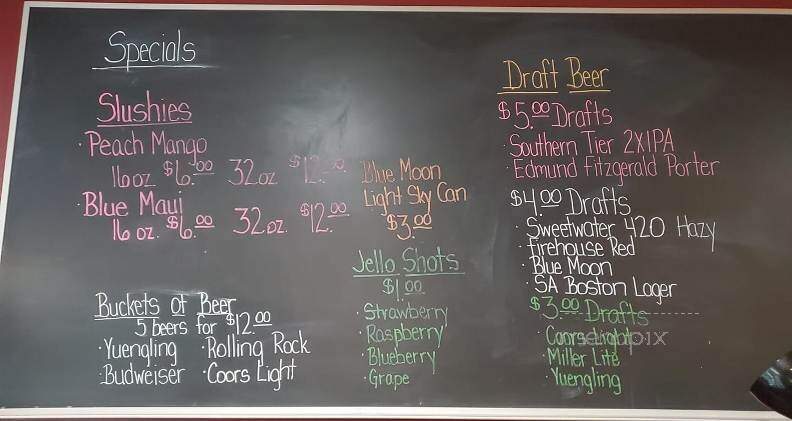 Specials
Slushies
· Peach Mango
16oz $6.00 32oz $12.00
· Blue Maui
16 oz. $6.00 32oz. $12.00
Buckets of Beer
5 beers for $12.00
· Yuengling · Rolling Rock
· Budweiser · Coors Light
Blue Moon
Light Sky Can
$3.00
Jello Shots
$1.00
· Strawberry
· Raspberry
· Blueberry
· Grape
Draft Beer
$5.00 Drafts
· Southern Tier 2XIPA
· Edmund Fitzgerald Porter
$4.00 Drafts
· Sweetwater 420 Hazy
· Firehouse Red
· Blue Moon
· SA Boston Lager
$3.00 Drafts
· Coors Light
· Miller Lite
· Yuengling